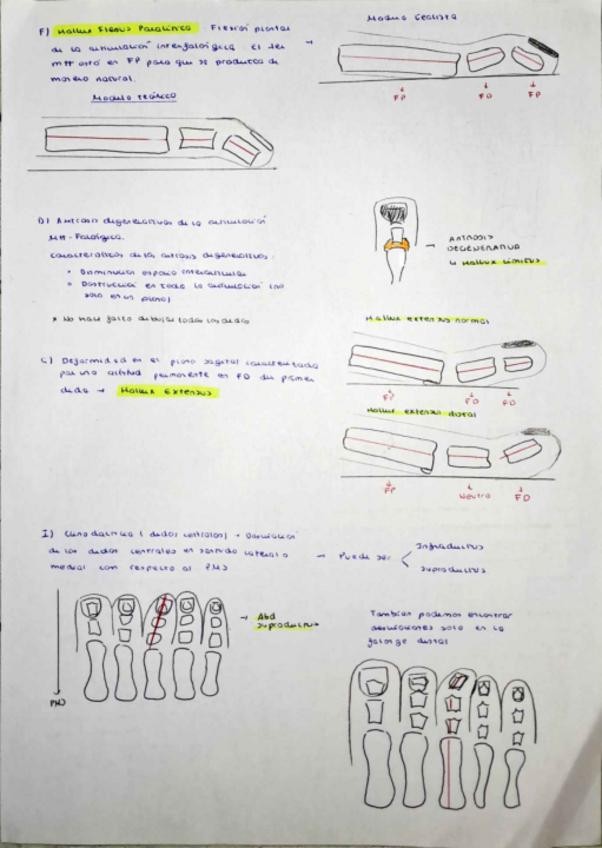 F) Hallux Flexus Paralítico: Flexión plantar
de la articulación interfalángica. El 1er
MTT está en FP para que se produzca de
manera natural.
Modelo teórico
→ Modelo Realista
FP FD FP
D) Artrosis degenerativa de la articulación
Mtt-Falángica.
Características de las artrosis degenerativas:
• Disminución espacio interarticular
• Destrucción en toda la articulación (no
solo en un plano)
* No hace falta dibujar todos los dedos
→ ARTROSIS
DEGENERATIVA
↳ Hallux Limitus
C) Deformidad en el plano sagital caracterizada
por una actitud permanente en FD del primer
dedo → Hallux Extensus
Hallux extensus normal
FP FD FD
Hallux extensus distal
FP Neutro FD
I) Clinodactilia (dedos centrales) → Desviación
de los dedos centrales en sentido lateral o
medial con respecto al PMS
→ Puede ser
Infraductus
Supraductus
PMS
→ Abd
supraductus
También podemos encontrar
desviaciones solo en la
falange distal